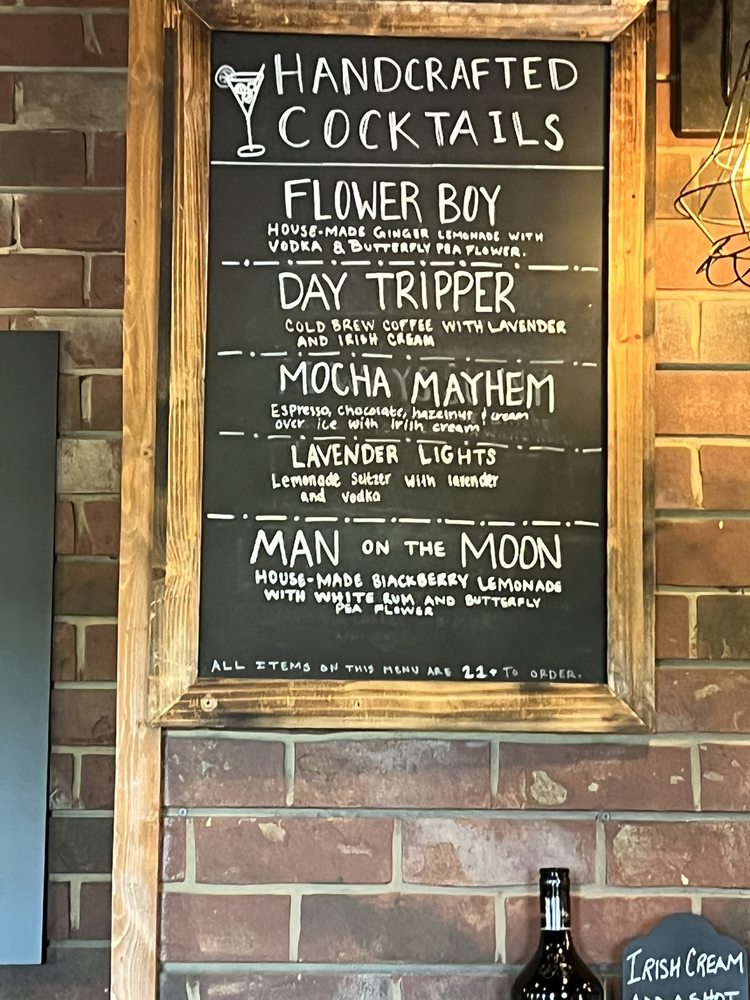 HANDCRAFTED
COCKTAILS
FLOWER BOY
HOUSE-MADE GINGER LEMONADE WITH
VODKA & BUTTERFLY PEA FLOWER.
DAY TRIPPER
COLD BREW COFFEE WITH LAVENDER
AND IRISH CREAM
MOCHA MAYHEM
Espresso, chocolate, hazelnut & cream
over ice with irish cream
LAVENDER LIGHTS
Lemonade Seltzer with lavender
and vodka
MAN ON THE MOON
HOUSE-MADE BLACKBERRY LEMONADE
WITH WHITE RUM AND BUTTERFLY
PEA FLOWER
ALL ITEMS ON THIS MENU ARE 21+ TO ORDER.
IRISH CREAM
SHOT